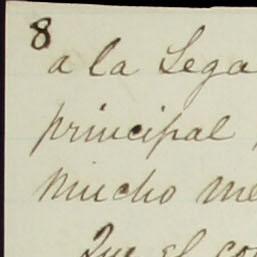 8
a la Lega
principal
mucho me
Que el co